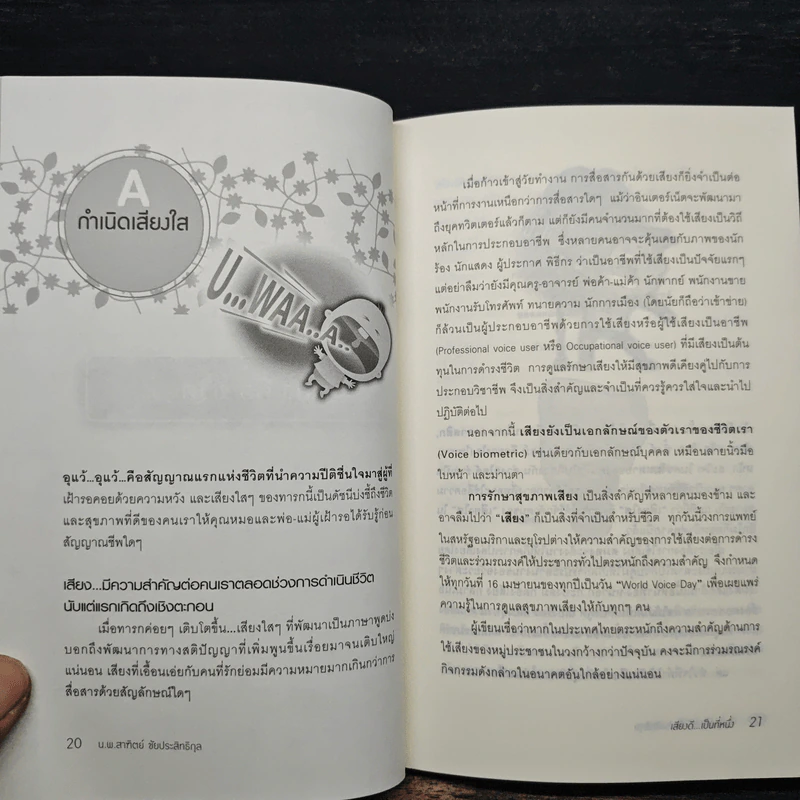 A
กำเนิดเสียงใส
U...WAA..A..
อุแว้...อุแว้...คือสัญญาณแรกแห่งชีวิตที่นำความปีติชื่นใจมาสู่ผู้ที่
เฝ้ารอคอยด้วยความหวัง และเสียงใสๆ ของทารกนี้เป็นดัชนีบ่งชี้ถึงชีวิต
และสุขภาพที่ดีของคนเราให้คุณหมอและพ่อ-แม่ผู้เฝ้ารอได้รับรู้ก่อน
สัญญาณชีพใดๆ
เสียง...มีความสำคัญต่อคนเราตลอดช่วงการดำเนินชีวิต
นับแต่แรกเกิดถึงเชิงตะกอน
เมื่อทารกค่อยๆ เติบโตขึ้น...เสียงใสๆ ที่พัฒนาเป็นภาษาพูดบ่ง
บอกถึงพัฒนาการทางสติปัญญาที่เพิ่มพูนขึ้นเรื่อยมาจนเติบใหญ่
แน่นอน เสียงที่เอื้อนเอ่ยกับคนที่รักย่อมมีความหมายมากเกินกว่าการ
สื่อสารด้วยสัญลักษณ์ใดๆ
20 น.พ.สาทิตย์ ชัยประสิทธิกุล
เมื่อก้าวเข้าสู่วัยทำงาน การสื่อสารกันด้วยเสียงก็ยิ่งจำเป็นต่อ
หน้าที่การงานเหนือกว่าการสื่อสารใดๆ แม้ว่าอินเตอร์เน็ตจะพัฒนามา
ถึงยุคทวิตเตอร์แล้วก็ตาม แต่ก็ยังมีคนจำนวนมากที่ต้องใช้เสียงเป็นวิถี
หลักในการประกอบอาชีพ ซึ่งหลายคนอาจจะคุ้นเคยกับภาพของนัก
ร้อง นักแสดง ผู้ประกาศ พิธีกร ว่าเป็นอาชีพที่ใช้เสียงเป็นปัจจัยแรกๆ
แต่อย่าลืมว่ายังมีคุณครู-อาจารย์ พ่อค้า-แม่ค้า นักพากย์ พนักงานขาย
พนักงานรับโทรศัพท์ ทนายความ นักการเมือง (โดยนัยก็ถือว่าเข้าข่าย)
ก็ล้วนเป็นผู้ประกอบอาชีพด้วยการใช้เสียงหรือผู้ใช้เสียงเป็นอาชีพ
(Professional voice user หรือ Occupational voice user) ที่มีเสียงเป็นต้น
ทุนในการดำรงชีวิต การดูแลรักษาเสียงให้มีสุขภาพดีเคียงคู่ไปกับการ
ประกอบวิชาชีพ จึงเป็นสิ่งสำคัญและจำเป็นที่ควรรู้ควรใส่ใจและนำไป
ปฏิบัติต่อไป
นอกจากนี้ เสียงยังเป็นเอกลักษณ์ของตัวเราของชีวิตเรา
(Voice biometric) เช่นเดียวกับเอกลักษณ์บุคคล เหมือนลายนิ้วมือ
ใบหน้า และม่านตา
การรักษาสุขภาพเสียง เป็นสิ่งสำคัญที่หลายคนมองข้าม และ
อาจลืมไปว่า “เสียง” ก็เป็นสิ่งที่จำเป็นสำหรับชีวิต ทุกวันนี้วงการแพทย์
ในสหรัฐอเมริกาและยุโรปต่างให้ความสำคัญของการใช้เสียงต่อการดำรง
ชีวิตและร่วมรณรงค์ให้ประชากรทั่วไปตระหนักถึงความสำคัญ จึงกำหนด
ให้ทุกวันที่ 16 เมษายนของทุกปีเป็นวัน “World Voice Day” เพื่อเผยแพร่
ความรู้ในการดูแลสุขภาพเสียงให้กับทุกๆ คน
ผู้เขียนเชื่อว่าหากในประเทศไทยตระหนักถึงความสำคัญด้านการ
ใช้เสียงของหมู่ประชาชนในวงกว้างกว่าปัจจุบัน คงจะมีการร่วมรณรงค์
กิจกรรมดังกล่าวในอนาคตอันใกล้อย่างแน่นอน
เสียงดี...เป็นที่หนึ่ง 21